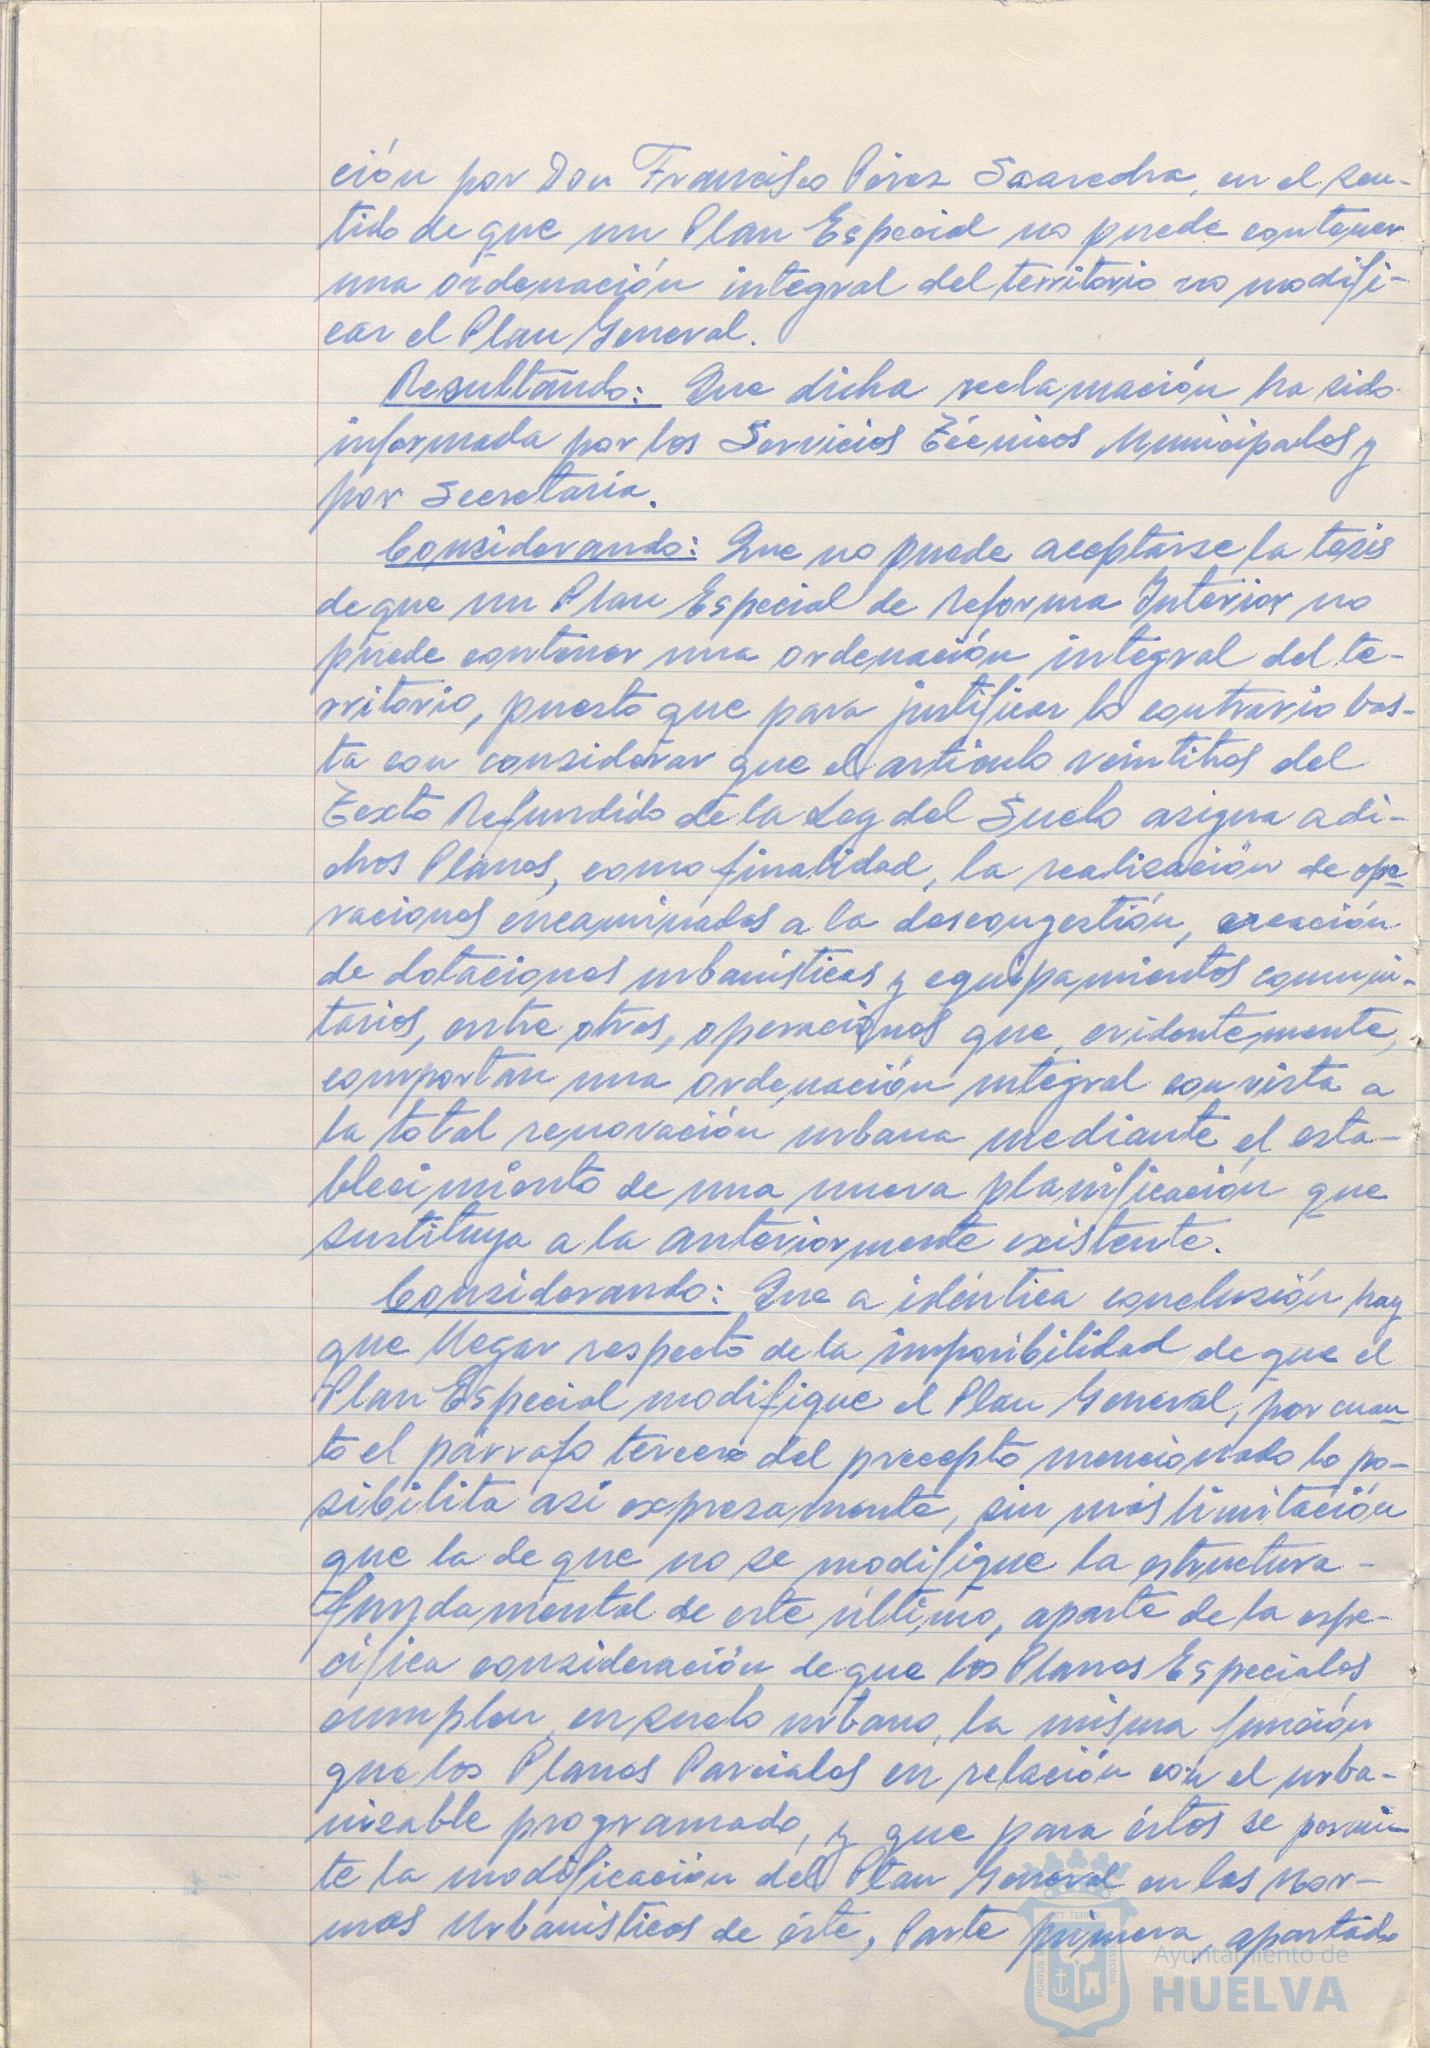 ción por Don Francisco Pérez Saavedra, en el sen-
tido de que un Plan Especial no puede contener
una ordenación integral del territorio no modifi-
car el Plan General.
Resultando: Que dicha reclamación ha sido
informada por los Servicios Técnicos Municipales y
por Secretaria.
Considerando: Que no puede aceptarse la tesis
de que un Plan Especial de Reforma Interior no
puede contener una ordenación integral del te-
rritorio, puesto que para justificar lo contrario bas-
ta con considerar que el articulo veintitres del
Texto Refundido de la Ley del Suelo asigna a di-
chos Planes, como finalidad, la realización de ope-
raciones encaminadas a la descongestión, creación
de dotaciones urbanisticas y equipamientos comuni-
tarios, entre otras, operaciones que, evidentemente,
comportan una ordenación integral con vista a
la total renovación urbana mediante el esta-
blecimiento de una nueva planificación que
sustituya a la anteriormente existente.
Considerando: Que a idéntica conclusión hay
que llegar respecto de la imposibilidad de que el
Plan Especial modifique el Plan General, por cuan-
to el párrafo tercero del precepto mencionado lo po-
sibilita asi expresamente, sin más limitación
que la de que no se modifique la estructura-
fundamental de este último, aparte de la espe-
cifica consideración de que los Planes Especiales
cumplen, en suelo urbano, la misma función
que los Planes Parciales en relación con el urba-
nizable programado, y que para éstos se permi-
te la modificacion del Plan General en las Nor-
mas Urbanisticas de éste, Parte primera, apartado
Ayuntamiento de
HUELVA